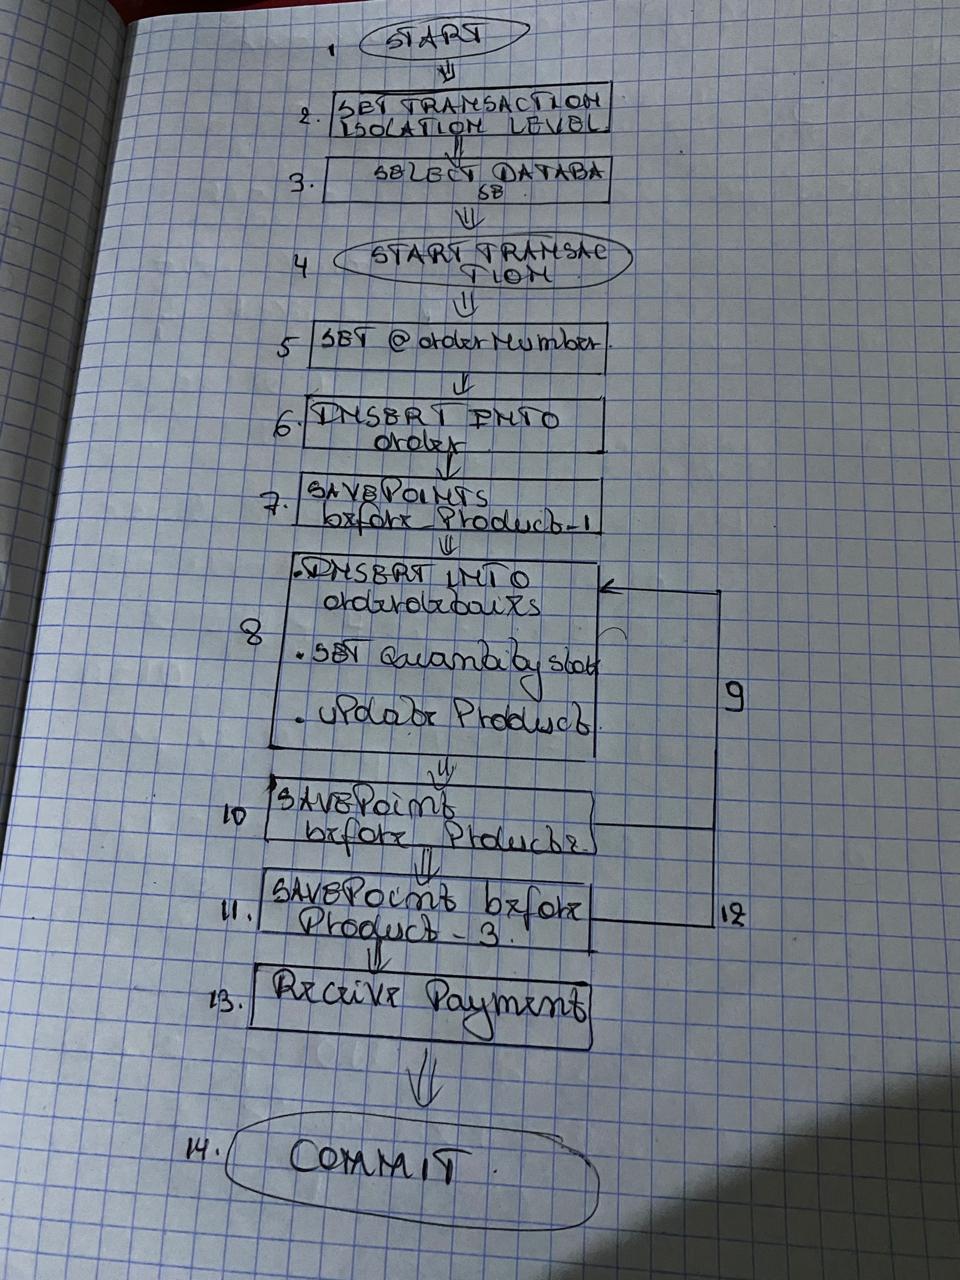 1 START
2. SET TRANSACTION
ISOLATION LEVEL
3. SELECT DATABA
SE
4 START TRANSAC
TION
5 SET @orderNumber
6. INSERT INTO
order
7. SAVEPOINTS
before_Product-1
8 . INSERT INTO
orderdetails
. SET Quantity stok
9
. update Product
10 SAVEPoint
before Product2.
11. SAVEPoint before
Product-3.
12
13. Receive Payment
14. COMMIT